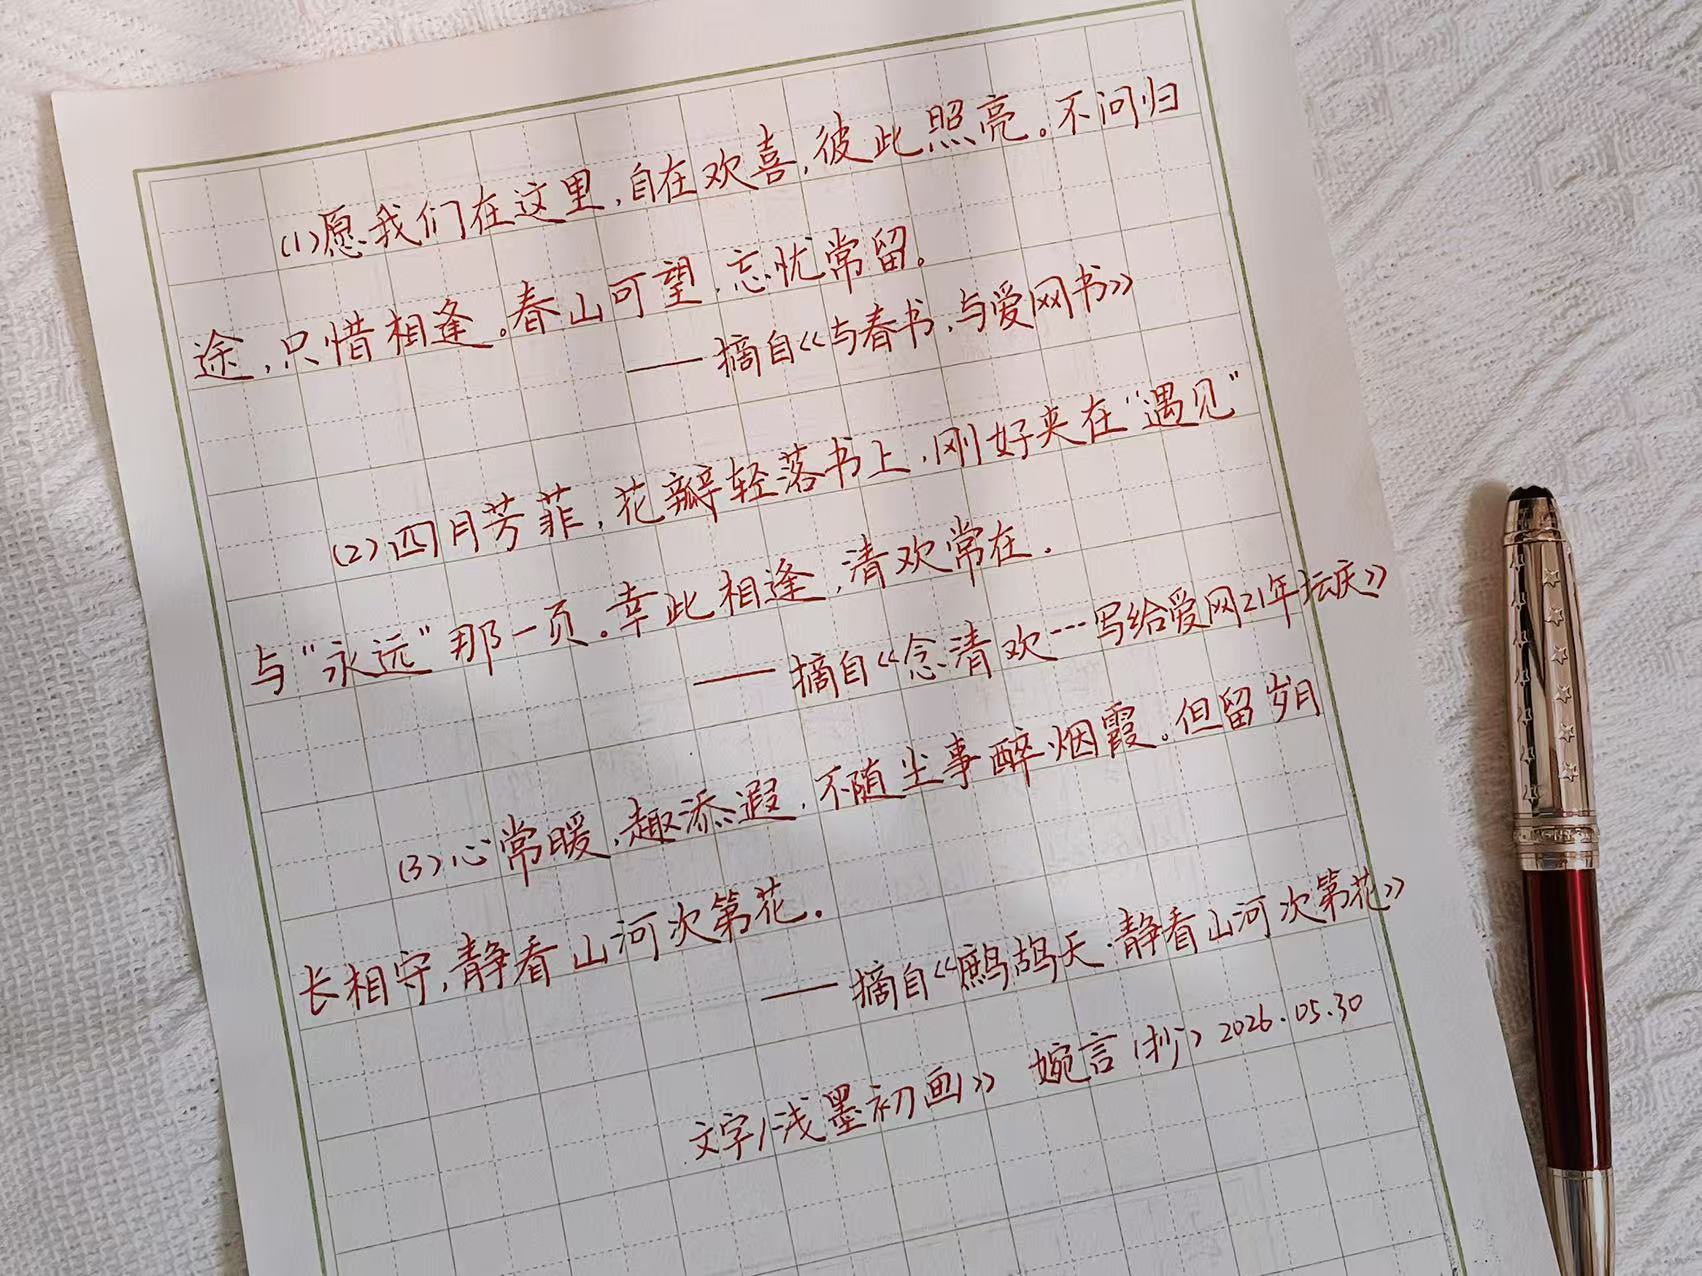 (1)愿我们在这里,自在欢喜,彼此照亮。不问归
途,只惜相逢。春山可望,忘忧常留。
——摘自《与春书,与爱网书》
(2)四月芳菲,花瓣轻落书上,刚好夹在“遇见”
与“永远”那一页。幸此相逢,清欢常在.
——摘自《念清欢---写给爱网21年坛庆》
(3)心常暖,趣添遐,不随尘事醉烟霞。但留岁月
长相守,静看山河次第花.
——摘自《鹧鸪天·静看山河次第花》
文字/浅墨初画》 婉言(抄)2026.05.30